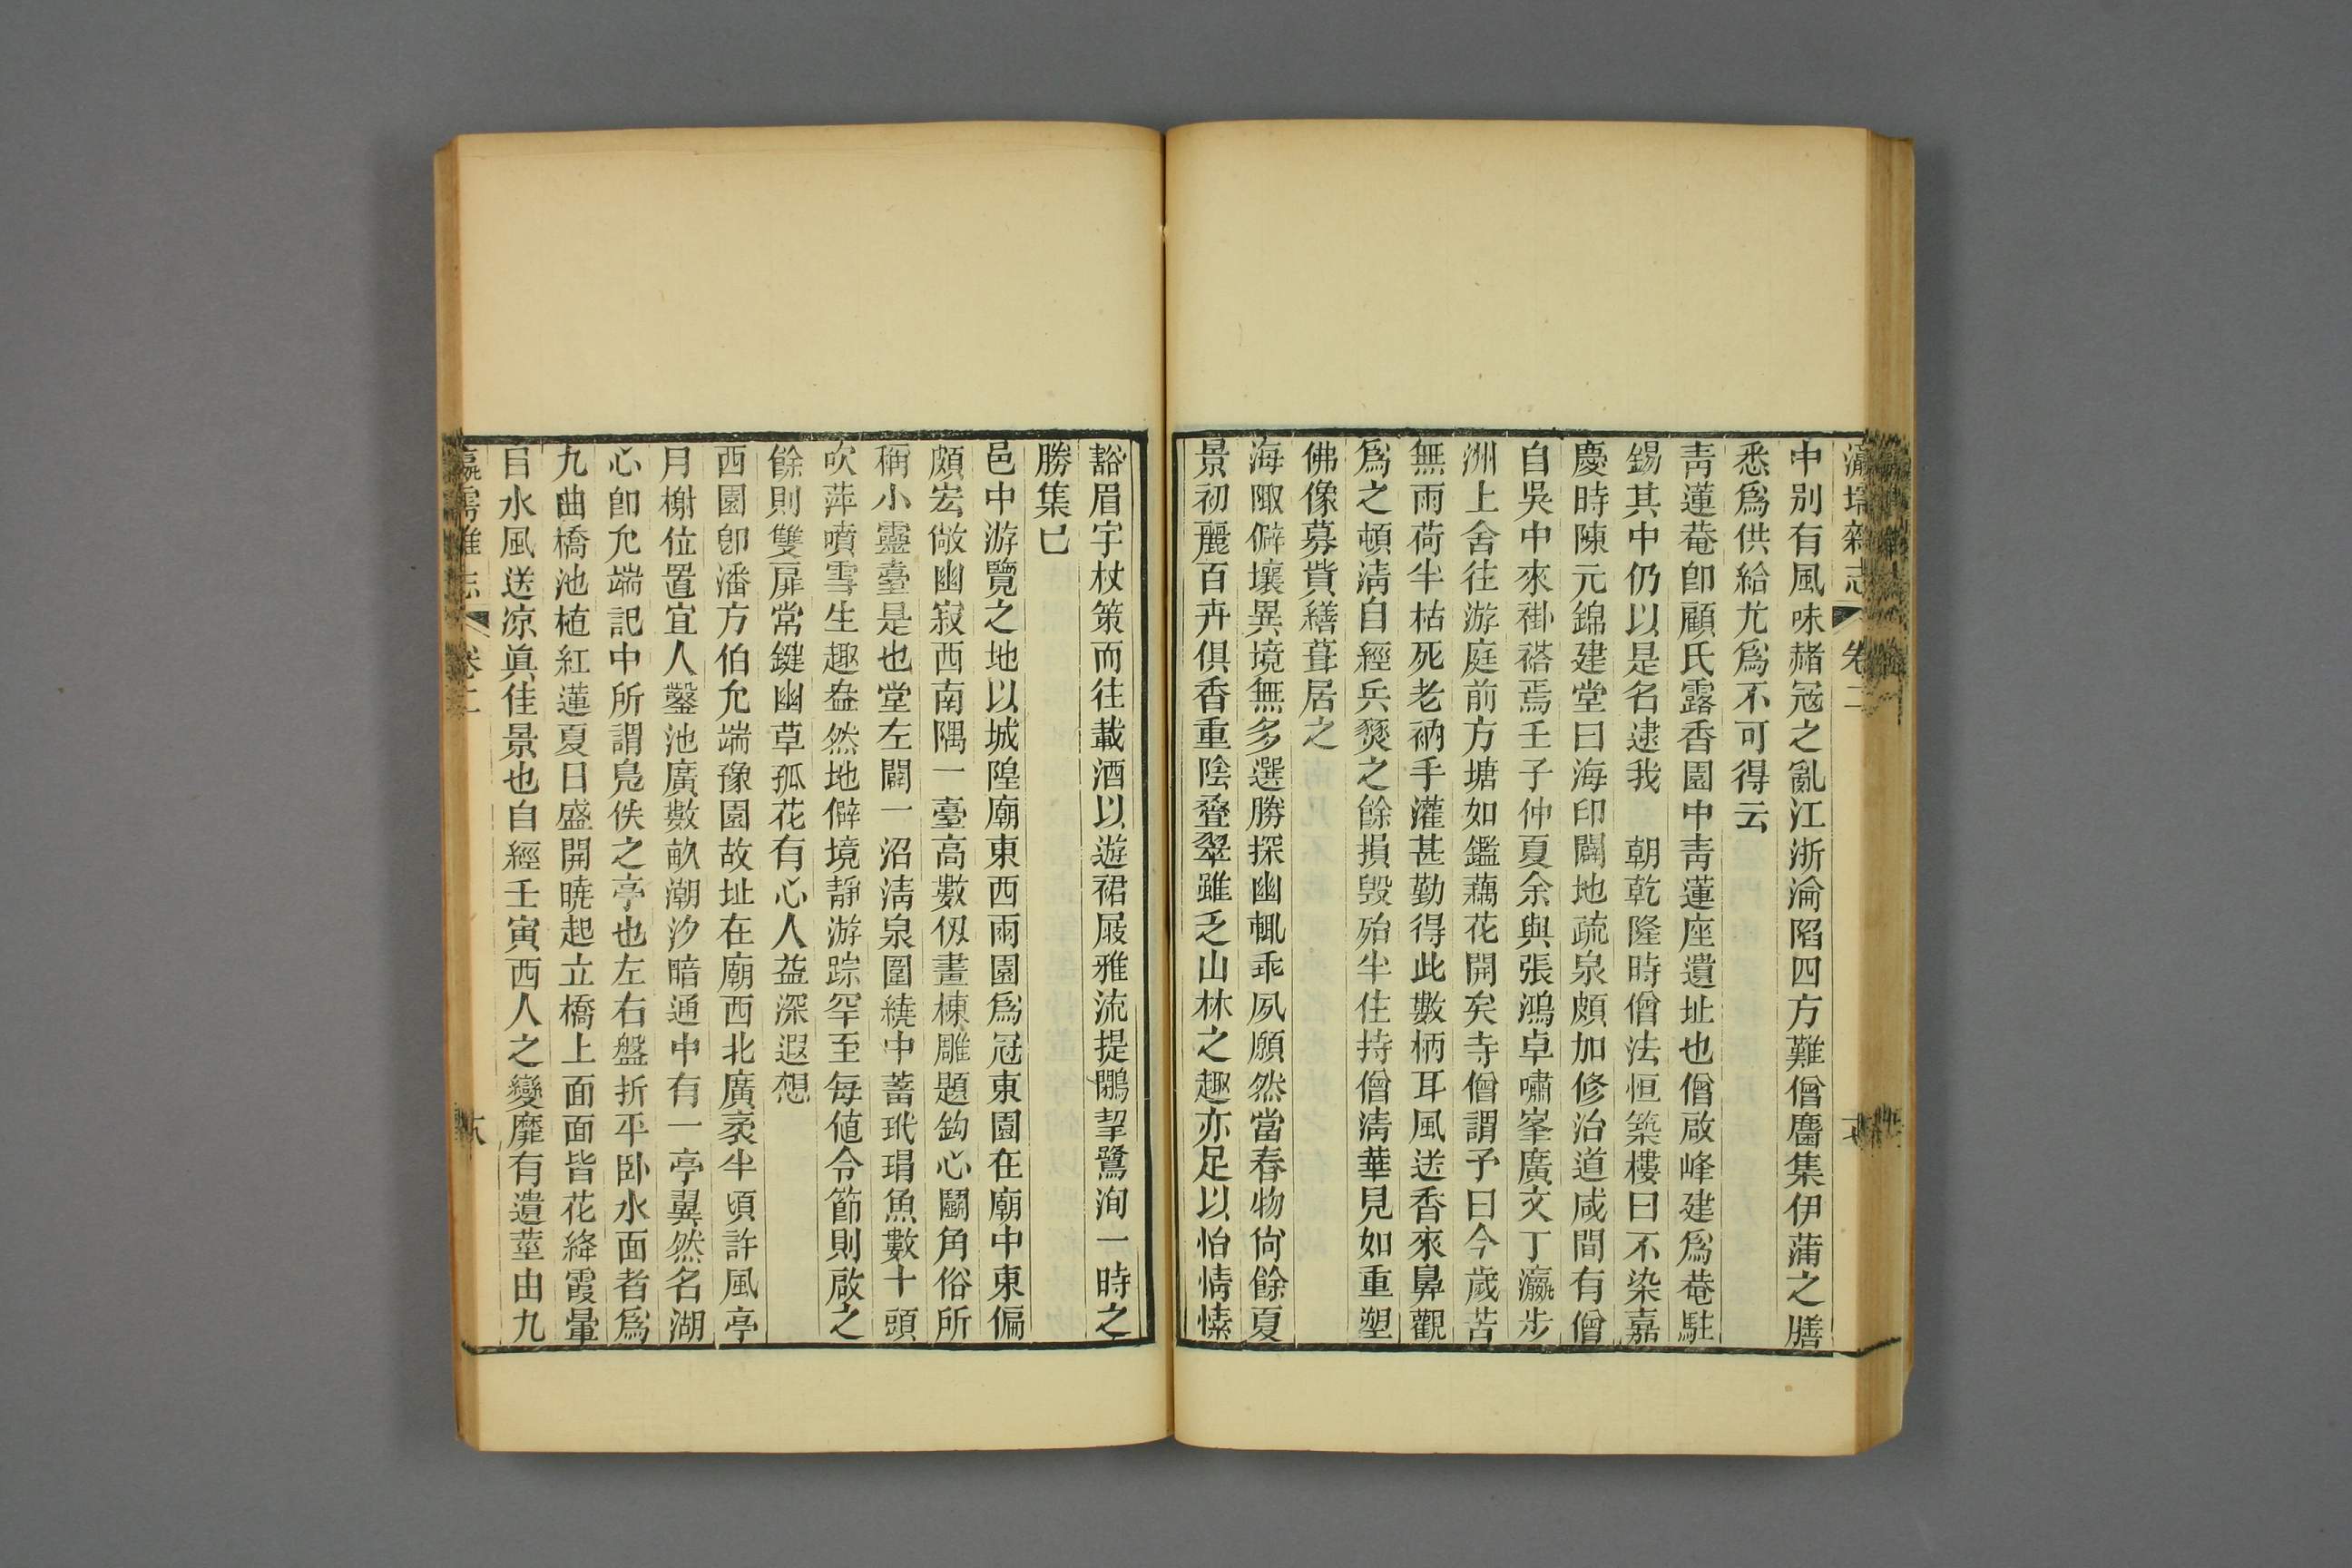 瀛壖雜志 卷二
中别有風味赭冦之亂江浙淪陷四方難僧麕集伊蒲之膳
悉爲供給尤爲不可得云
靑蓮菴卽顧氏露香園中靑蓮座遺址也僧啟峰建爲菴駐
錫其中仍以是名逮我　朝乾隆時僧法恒築樓曰不染嘉
慶時陳元錦建堂曰海印闢地疏泉頗加修治道咸間有僧
自吳中來褂褡焉壬子仲夏余與張鴻卓嘯峯廣文丁瀛步
洲上舍往游庭前方塘如鑑藕花開矣寺僧謂予曰今歲苦
無雨荷半枯死老衲手灌甚勤得此數柄耳風送香來鼻觀
爲之頓淸自經兵燹之餘損毀殆半住持僧淸華見如重塑
佛像募貲繕葺居之
海陬僻壤異境無多選勝探幽輒乖夙願然當春物尙餘夏
景初麗百卉俱香重陰疊翠雖乏山林之趣亦足以怡情愫
豁眉宇杖策而往載酒以遊裙屐雅流提鷳挈鷺洵一時之
勝集已
邑中游覽之地以城隍廟東西兩園爲冠東園在廟中東偏
頗宏敞幽寂西南隅一臺高數仭畫棟雕題鈎心鬭角俗所
稱小靈臺是也堂左闢一沼淸泉圍繞中蓄玳瑁魚數十頭
吹萍噴雪生趣盎然地僻境靜游踪罕至每値令節則啟之
餘則雙扉常鍵幽草孤花有心人益深遐想
西園卽潘方伯允端豫園故址在廟西北廣袤半頃許風亭
月榭位置宜人鑿池廣數畝潮汐暗通中有一亭翼然名湖
心卽允端記中所謂鳧佚之亭也左右盤折平臥水面者爲
九曲橋池植紅蓮夏日盛開曉起立橋上面面皆花絳霞暈
目水風送凉眞佳景也自經壬寅西人之變靡有遺莖由九
瀛壖雜志 卷二